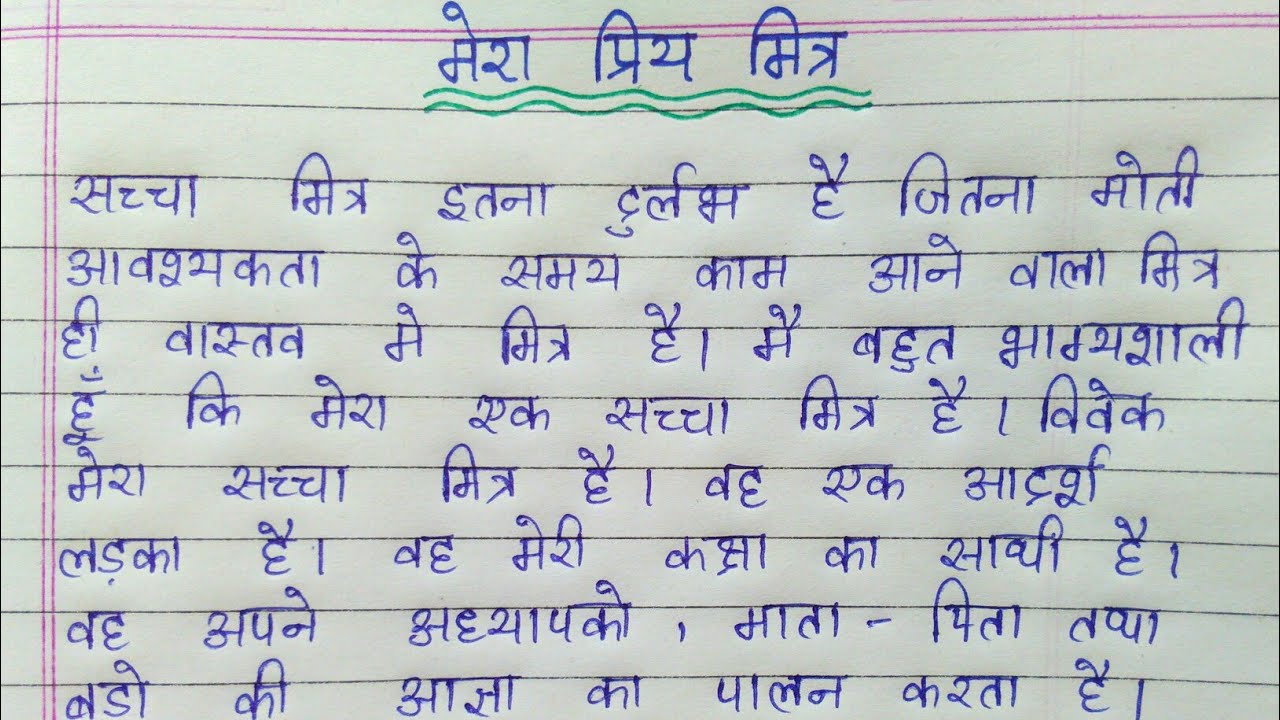 मेरा प्रिय मित्र
सच्चा मित्र इतना दुर्लभ है जितना मोती
आवश्यकता के समय काम आने वाला मित्र
ही वास्तव मे मित्र है। मै बहुत भाग्यशाली
हूँ कि मेरा एक सच्चा मित्र है । विवेक
मेरा सच्चा मित्र है। वह एक आदर्श
लड़का है। वह मेरी कक्षा का साथी है।
वह अपने अध्यापको , माता - पिता तथा
बडो की आज्ञा का पालन करता है।